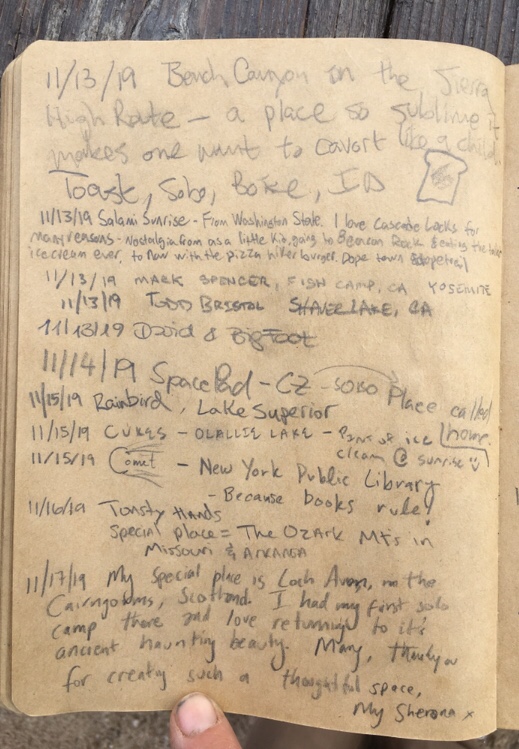 11/13/19 Bench Canyon on the Sierra
High Route - a place so sublime it
makes one want to cavort like a child.
Toast, Sobo, Boise, ID
11/13/19 Salami Sunrise - From Washington State. I love Cascade Locks for
many reasons - Nostalgia from as a little kid, going to Beacon Rock & eating the
ice cream ever, to now with the pizza hiker burger. Dope town
11/13/19 MARK SPENCER, FISH CAMP, CA YOSEMITE
11/13/19 TODD BRISTOL SHAVER LAKE, CA
11/13/19 Druid & Bigfoot
11/14/19 Space Pad - CZ - SOBO Place called
home.
11/15/19 Rainbird, Lake Superior
11/15/19 CUKES - OLALLIE LAKE - Pint of ice
cream @ sunrise
11/15/19 Comet - New York Public Library
- Because books rule!
11/16/19 Toasty Hands
Special place = The Ozark Mts in
Missouri &
11/17/19 My special place is Loch Avon, in the
Cairngorms, Scotland. I had my first solo
camp there and love returning to it's
ancient haunting beauty. Many, thankyou
for creating such a thoughtful space,
My Sherona x